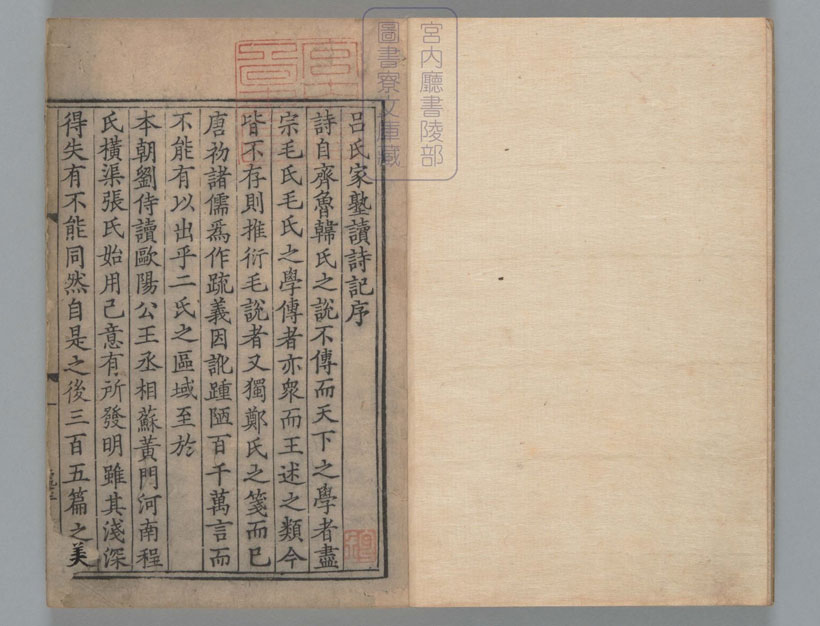 宮内廳書陵部
圖書寮文庫藏
呂氏家塾讀詩記序
詩自齊魯韓氏之說不傳而天下之學者盡
宗毛氏毛氏之學傳者亦衆而王述之類今
皆不存則推衍毛說者又獨鄭氏之箋而已
唐初諸儒爲作疏義因訛踵陋百千萬言而
不能有以出乎二氏之區域至於
本朝劉侍讀歐陽公王丞相蘇黃門河南程
氏橫渠張氏始用己意有所發明雖其淺深
得失有不能同然自是之後三百五篇之美